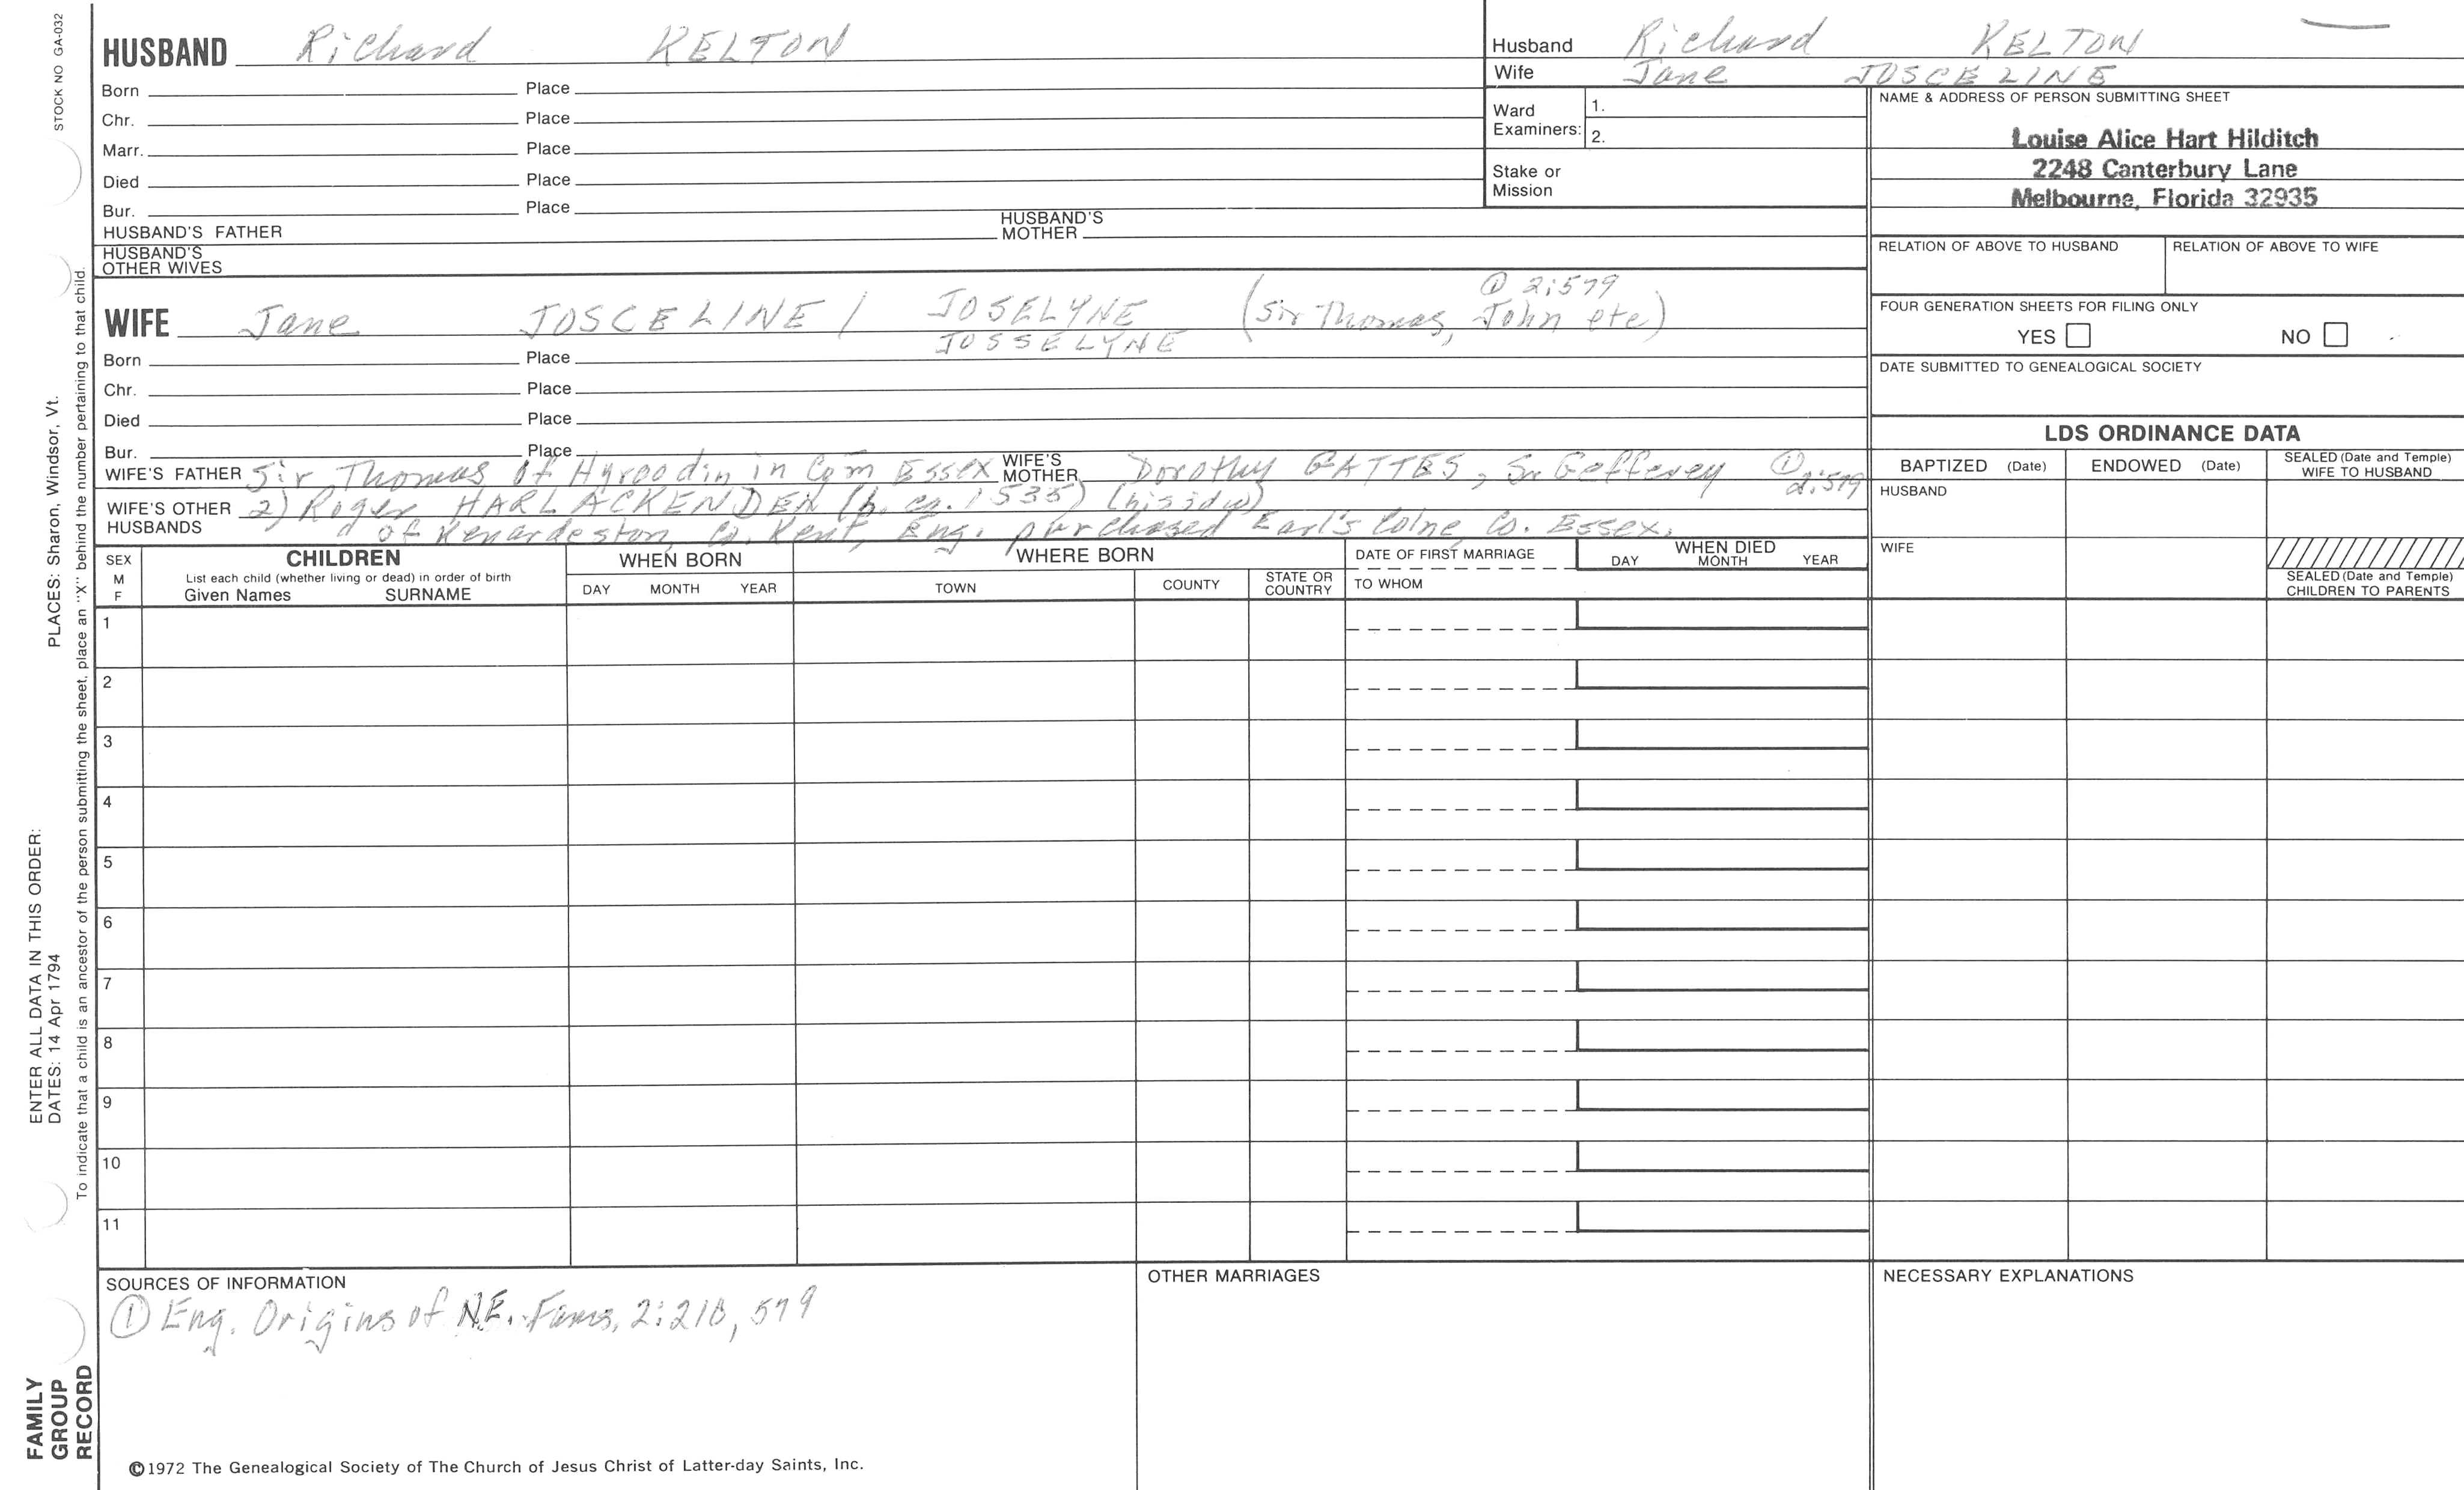 STOCK NO GA-032
HUSBAND Richard KELTON
Born Place
Chr. Place
Marr. Place
Died Place
Bur. Place
HUSBAND'S FATHER HUSBAND'S MOTHER
HUSBAND'S OTHER WIVES
Husband Richard KELTON
Wife Jane JOSCELINE
Ward Examiners: 1.
2.
Stake or Mission
NAME & ADDRESS OF PERSON SUBMITTING SHEET
Louise Alice Hart Hilditch
2248 Canterbury Lane
Melbourne, Florida 32935
RELATION OF ABOVE TO HUSBAND RELATION OF ABOVE TO WIFE
FOUR GENERATION SHEETS FOR FILING ONLY
YES NO
DATE SUBMITTED TO GENEALOGICAL SOCIETY
① 2:579
WIFE Jane JOSCELINE / JOSELYNE (Sir Thomas, John etc)
JOSSELYNE
Born Place
Chr. Place
Died Place
Bur. Place
WIFE'S FATHER Sir Thomas of Hyroodin in Com Essex WIFE'S MOTHER Dorothy GATTES, Gefferey ① 2:579
WIFE'S OTHER HUSBANDS 2) Roger HARLACKENDEN (b. ca. 1535)
of Kenardeston, Co. Kent, Eng. purchased Earl's Colne, Co. Essex.
LDS ORDINANCE DATA
BAPTIZED (Date) ENDOWED (Date) SEALED (Date and Temple) WIFE TO HUSBAND
HUSBAND
WIFE
SEALED (Date and Temple) CHILDREN TO PARENTS
SEX M F
CHILDREN
List each child (whether living or dead) in order of birth
Given Names SURNAME
WHEN BORN
DAY MONTH YEAR
WHERE BORN
TOWN COUNTY STATE OR COUNTRY
DATE OF FIRST MARRIAGE
TO WHOM
WHEN DIED
DAY MONTH YEAR
1
2
3
4
5
6
7
8
9
10
11
SOURCES OF INFORMATION
① Eng. Origins of N.E. Fams, 2:218, 579
OTHER MARRIAGES
NECESSARY EXPLANATIONS
©1972 The Genealogical Society of The Church of Jesus Christ of Latter-day Saints, Inc.
FAMILY GROUP RECORD
ENTER ALL DATA IN THIS ORDER:
DATES: 14 Apr 1794 PLACES: Sharon, Windsor, Vt.
To indicate that a child is an ancestor of the person submitting the sheet, place an "X" behind the number pertaining to that child.